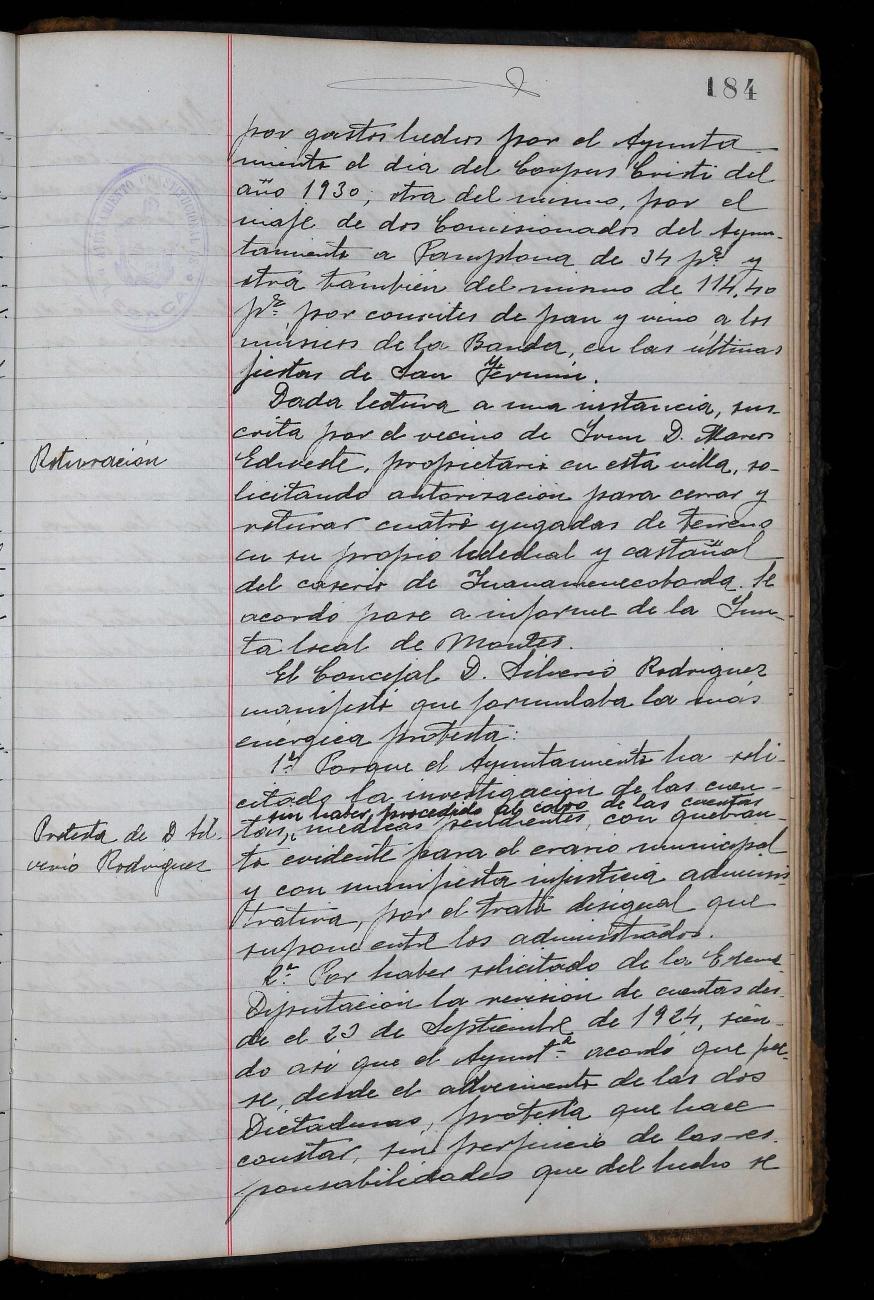 184
por gastos hechos por el Ayunta-
miento el dia del Corpus Cristi del
año 1930; otra del mismo, por el
viaje de dos Comisionados del Ayun-
tamiento a Pamplona de 34 pts y
otra también del mismo de 114,40
pts por convites de pan y vino a los
músicos de la Banda, en las últimas
fiestas de San Fermín.
Dada lectura a una instancia, sus-
Roturación
crita por el vecino de Irun D. Marcos
Echeveste, propietario en esta villa, so-
licitando autorización para cerrar y
roturar cuatro yugadas de terreno
en su propio helechal y castañal
del caserio de Juanamenecoborda. Se
acordó pase a informe de la Jun-
ta local de Montes.
El Concejal D. Silverio Rodriguez
manifestó que formulaba la más
enérgica protesta:
1º Porque el Ayuntamiento ha soli-
citado la investigación de las cuen-
sin haber procedido al cobro de las cuentas
tas, médicas pendientes, con quebran-
Protesta de D Sil-
verio Rodriguez
to evidente para el erario municipal
y con manifiesta injusticia adminis-
trativa, por el trato desigual que
supone entre los administrados.
2º Por haber solicitado de la Excma
Diputación la revisión de cuentas des-
de el 23 de Septiembre de 1924, sien-
do asi que el Ayuntº acordó que fue-
se, desde el advenimiento de las dos
Dictaduras, protesta que hace
constar, sin perjuicio de las res-
ponsabilidades que del hecho se